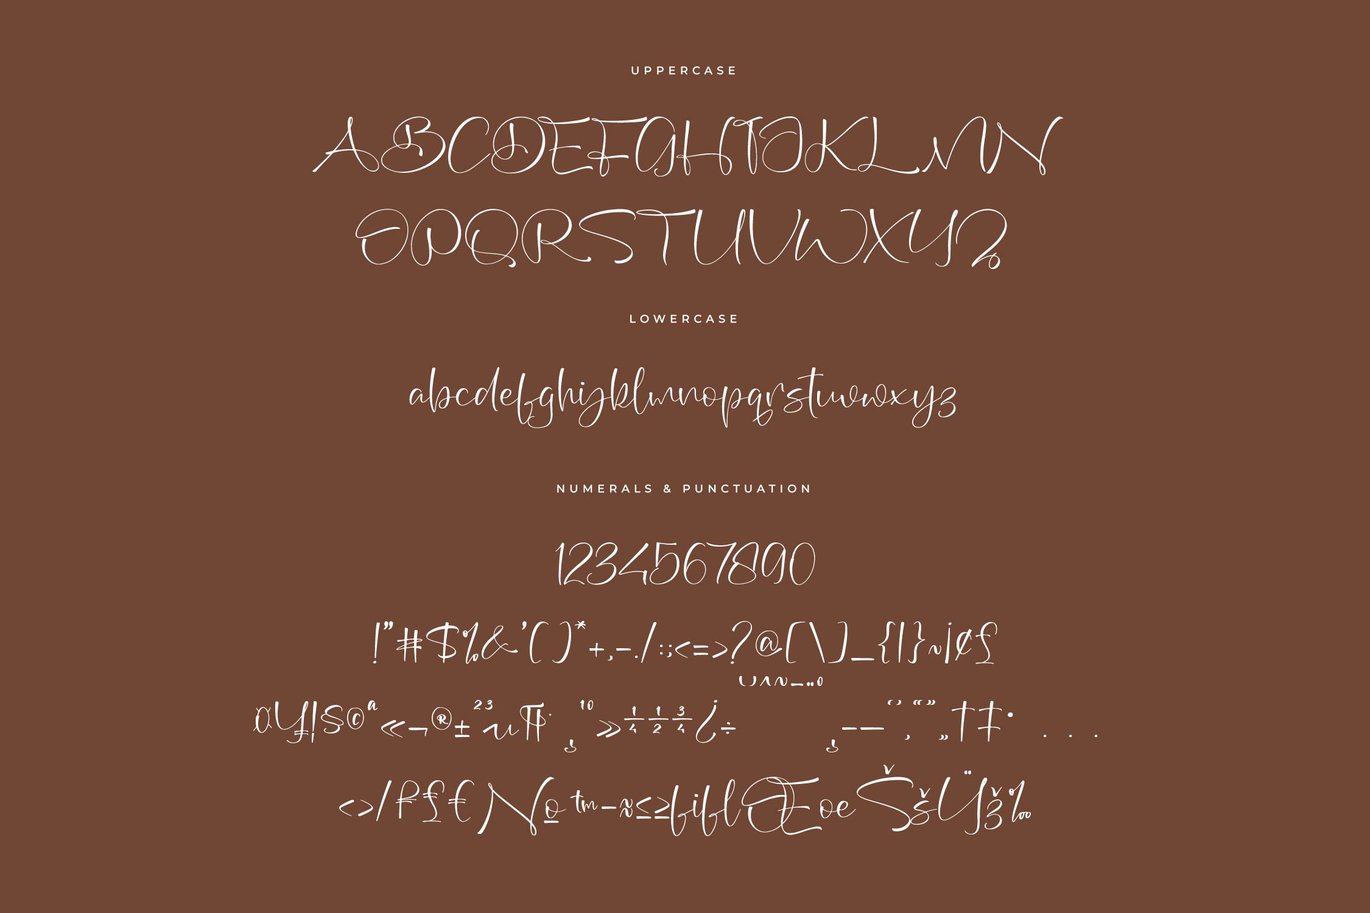 UPPERCASE
ABCDEFGHIJKLMN
OPQRSTUVWXYZ
LOWERCASE
abcdefghijklmnopqrstuvwxyz
NUMERALS & PUNCTUATION
1234567890
!"#$%&'()*+,-./:;<=>?@[\]_{|}~¡¢£
¤¥¦§©ª«¬®±²³µ¶·¸¹º»¼½¾¿÷ ¸–—‘’‚“”„†‡•…
‹›/₣₤€№™−≈≤≥fiflŒœŠšŸž‰